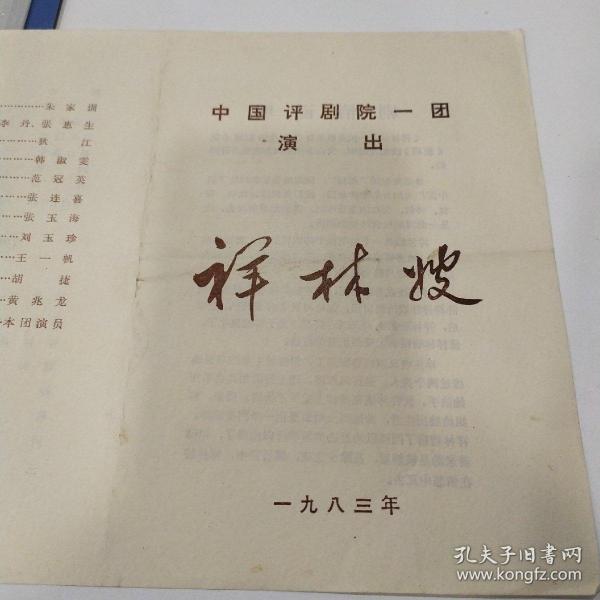 朱家训
李丹、张惠生
狄江
韩淑雯
范冠英
张连喜
张玉海
刘玉珍
王一帆
胡捷
黄兆龙
本团演员
中国评剧院一团
演出
祥林嫂
一九八三年
孔夫子旧书网
www.kongfz.com